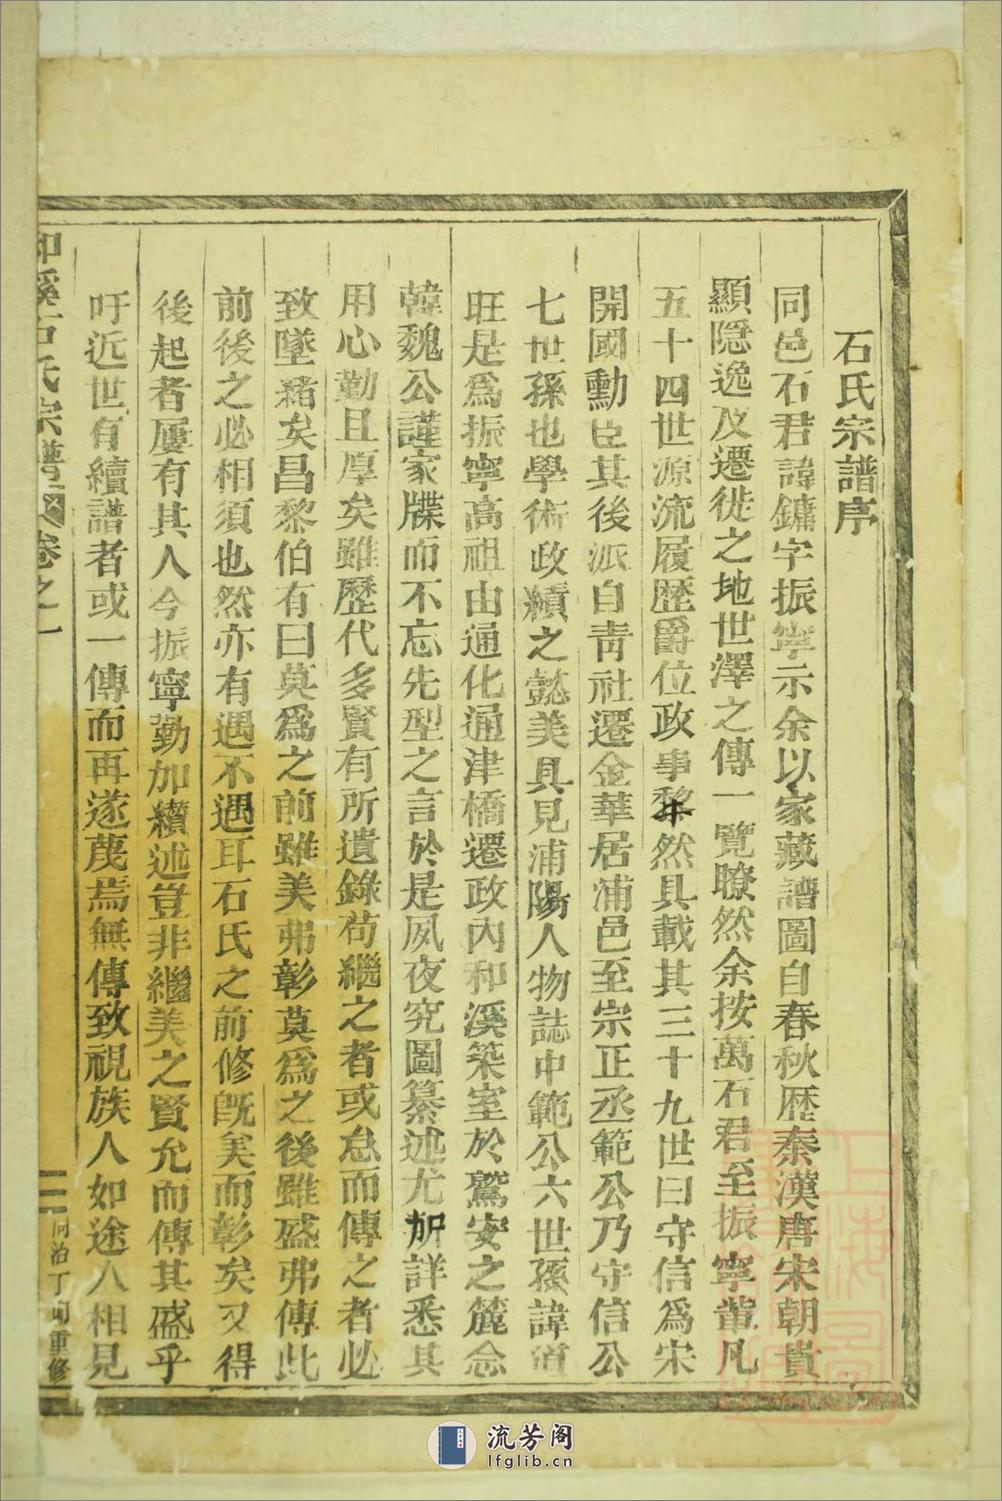 石氏宗譜序
同邑石君諱鏞字振寧示余以家藏譜圖自春秋歴秦漢唐宋朝貴
顯隱逸及遷徙之地世澤之傳一覽暸然余按萬石君至振寧輩凡
五十四世源流履歷爵位政事犂然具載其三十九世曰守信爲宋
開國勳臣其後派自靑社遷金華居浦邑至宗正丞範公乃守信公
七世孫也學術政績之懿美具見浦陽人物誌中範公六世孫諱道
旺是爲振寧高祖由通化通津橋遷政內和溪築室於鷲安之麓念
韓魏公謹家牒而不忘先型之言於是夙夜究圖纂述尤加詳悉其
用心勤且厚矣雖歷代多賢有所遺錄苟繼之者或怠而傳之者必
致墜緒矣昌黎伯有曰莫爲之前雖美弗彰莫爲之後雖盛弗傳此
前後之必相須也然亦有遇不遇耳石氏之前修旣美而彰矣又得
後起者屢有其人今振寧勤加纘述豈非繼美之賢允而傳其盛乎
吁近世有續譜者或一傳而再遂蔑焉無傳致視族人如途人相見
和溪石氏宗譜 卷之一
二 同治丁卯重修
流芳阁
lfglib.cn